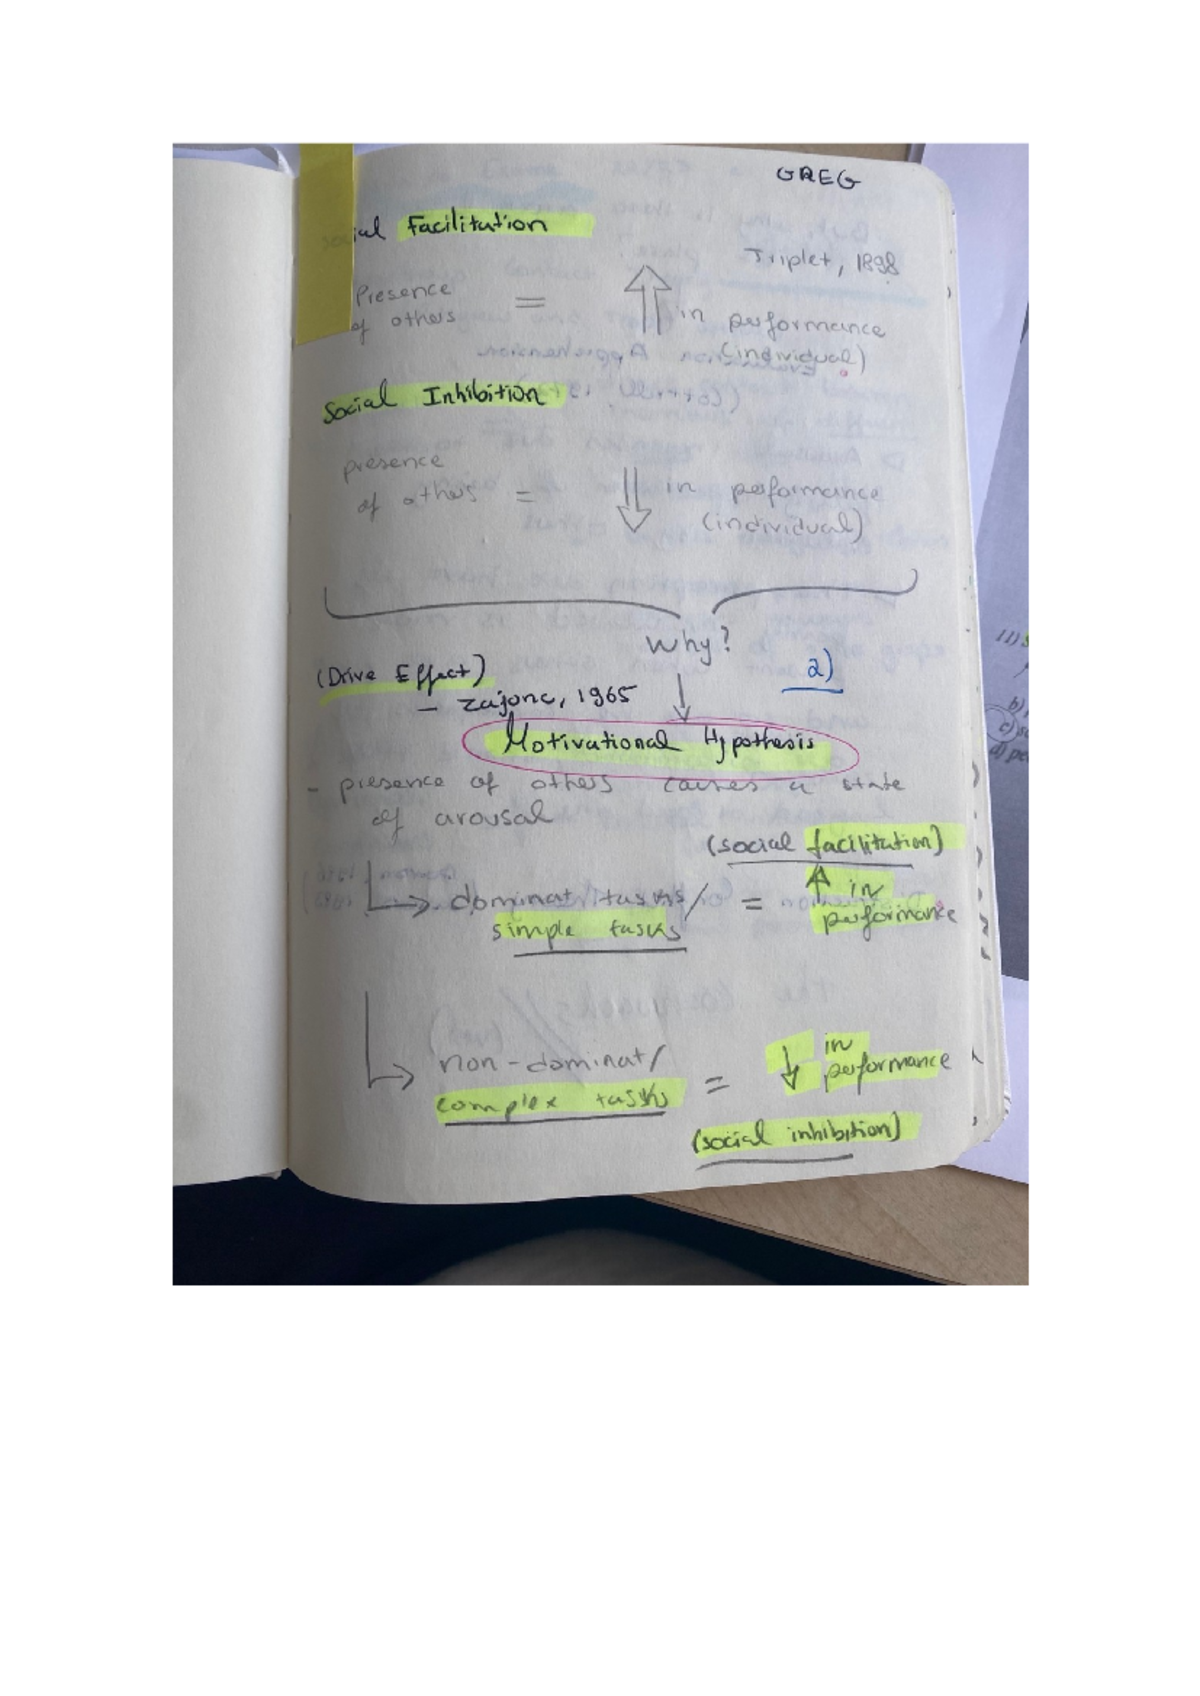 GREG
ial Facilitation
Triplet, 1898
Presence
of others = ⇑ in performance
(individual)
Social Inhibition
presence
of others = ⇓ in performance
(individual)
Why?
2)
(Drive Effect)
- Zajonc, 1965
↓
Motivational Hypothesis
- presence of others causes a state
of arousal
(social facilitation)
→ dominat tasks/ = ↑ in
simple tasks performance
→ non-dominat/ = ↓ in
complex tasks performance
(social inhibition)
11)
b)
c)
d) pe